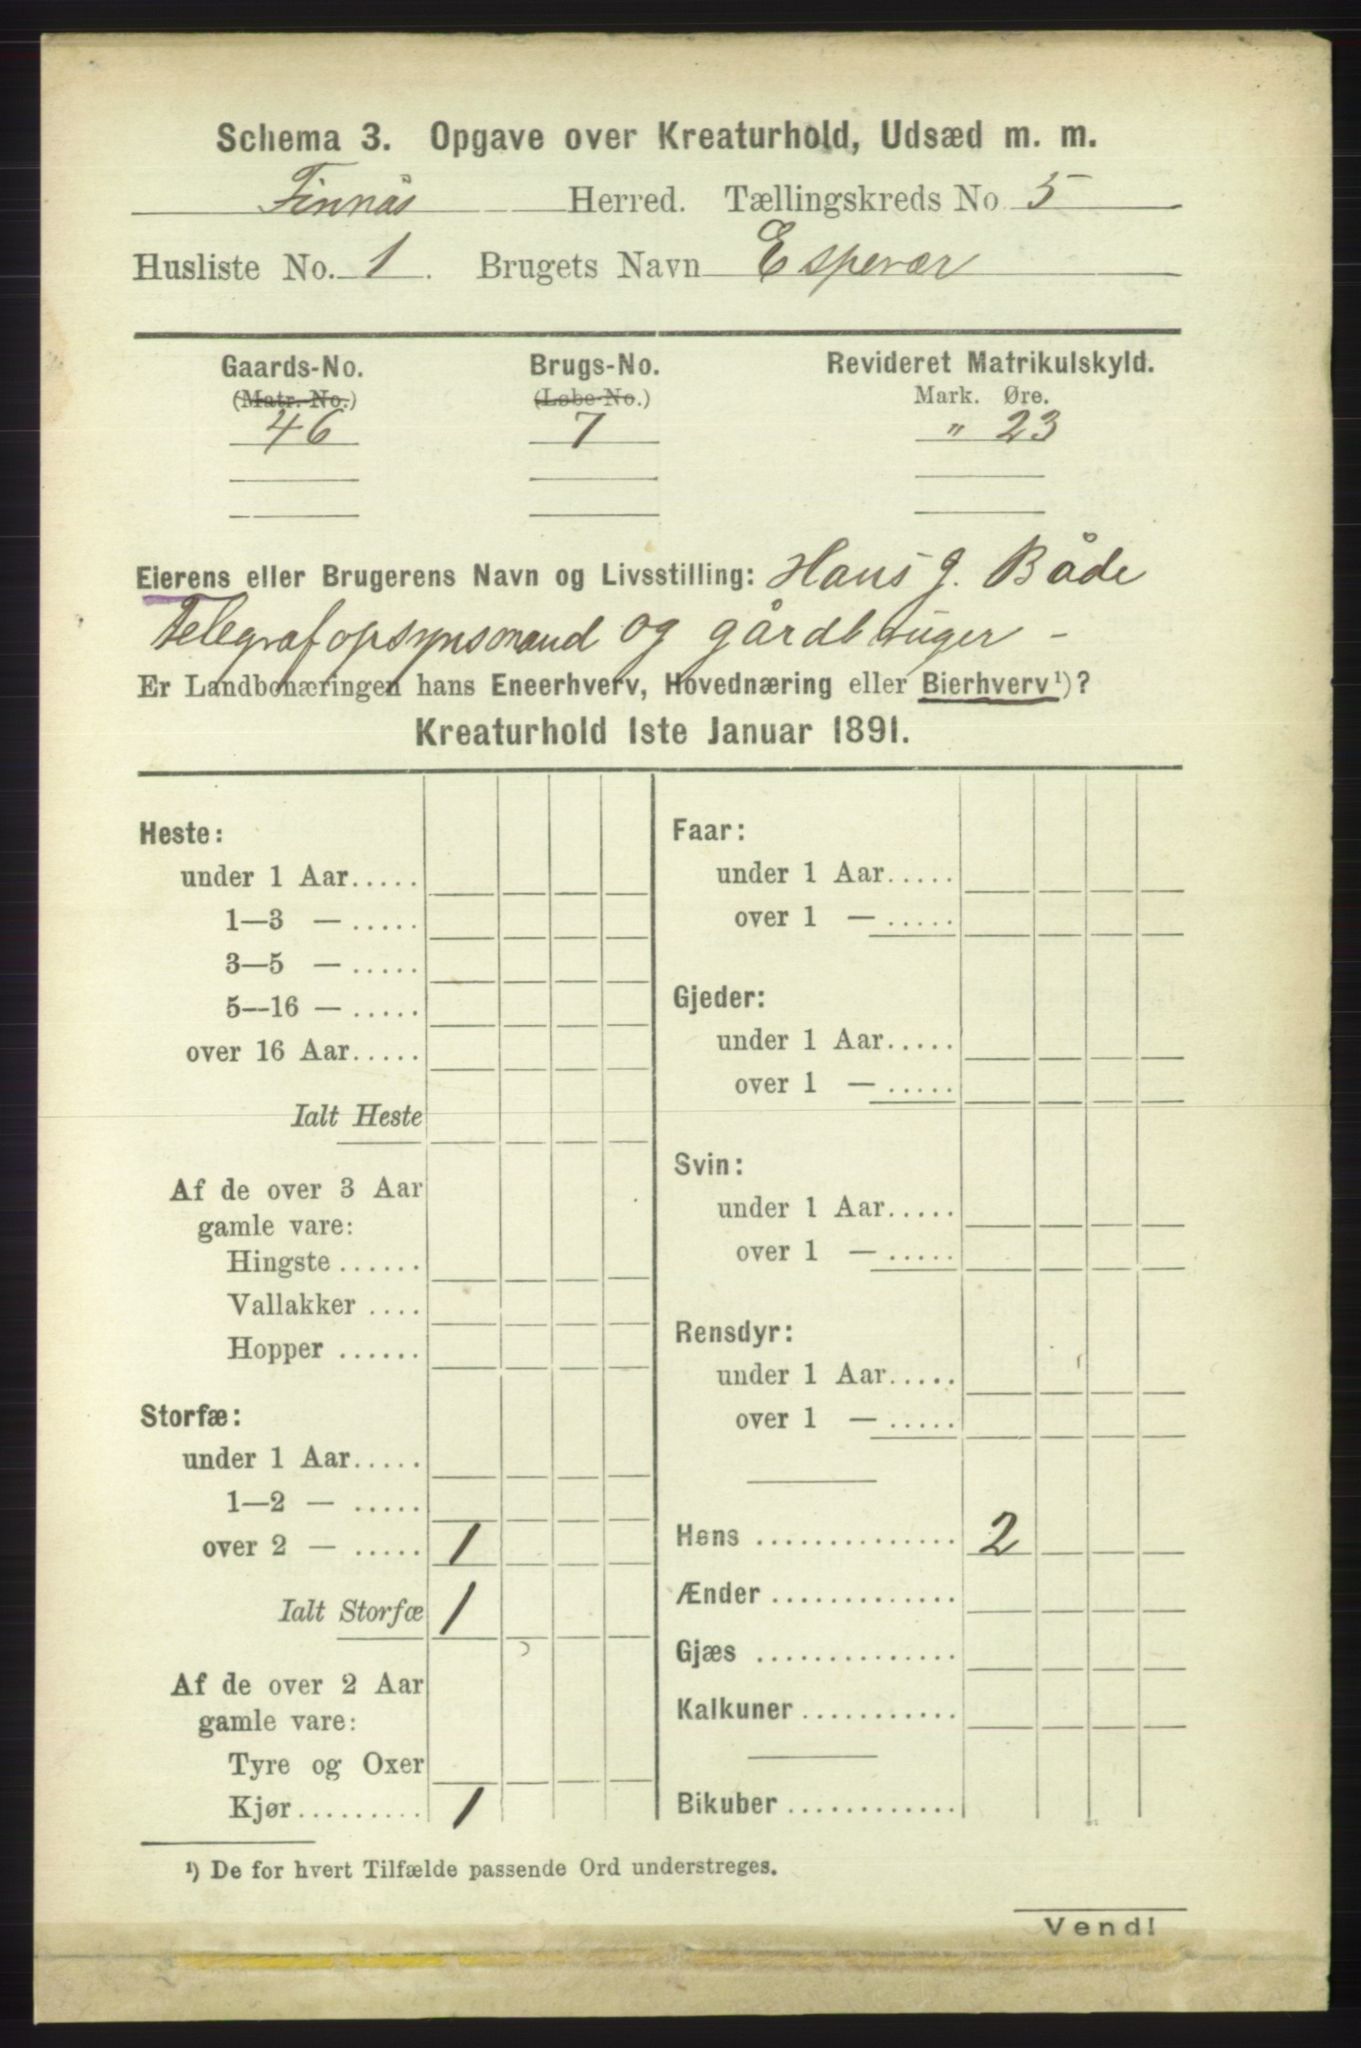 Schema 3. Opgave over Kreaturhold, Udsæd m. m.
Finnås Herred. Tællingskreds No 5
Husliste No. 1. Brugets Navn Espevær
Gaards-No. Brugs-No. Revideret Matrikulskyld.
(Matr.-No.) (Løbe-No.) Mark. Øre.
46 7 " 23
Eierens eller Brugerens Navn og Livsstilling: Hans J. Både
Telegrafopsynsmand og gårdbruger -
Er Landbonæringen hans Eneerhverv, Hovednæring eller Bierhverv¹)?
Kreaturhold 1ste Januar 1891.
Heste:
under 1 Aar.....
1—3 — .....
3—5 — .....
5—16 — .....
over 16 Aar.....
Ialt Heste
Af de over 3 Aar
gamle vare:
Hingste ......
Vallakker ....
Hopper ......
Storfæ:
under 1 Aar.....
1—2 — .....
over 2 — ..... 1
Ialt Storfæ 1
Af de over 2 Aar
gamle vare:
Tyre og Oxer
Kjør......... 1
Faar:
under 1 Aar.....
over 1 — .....
Gjeder:
under 1 Aar.....
over 1 — .....
Svin:
under 1 Aar.....
over 1 — .....
Rensdyr:
under 1 Aar.....
over 1 — .....
Høns .............. 2
Ænder .............
Gjæs ..............
Kalkuner ...........
Bikuber ............
¹) De for hvert Tilfælde passende Ord understreges.
Vend!